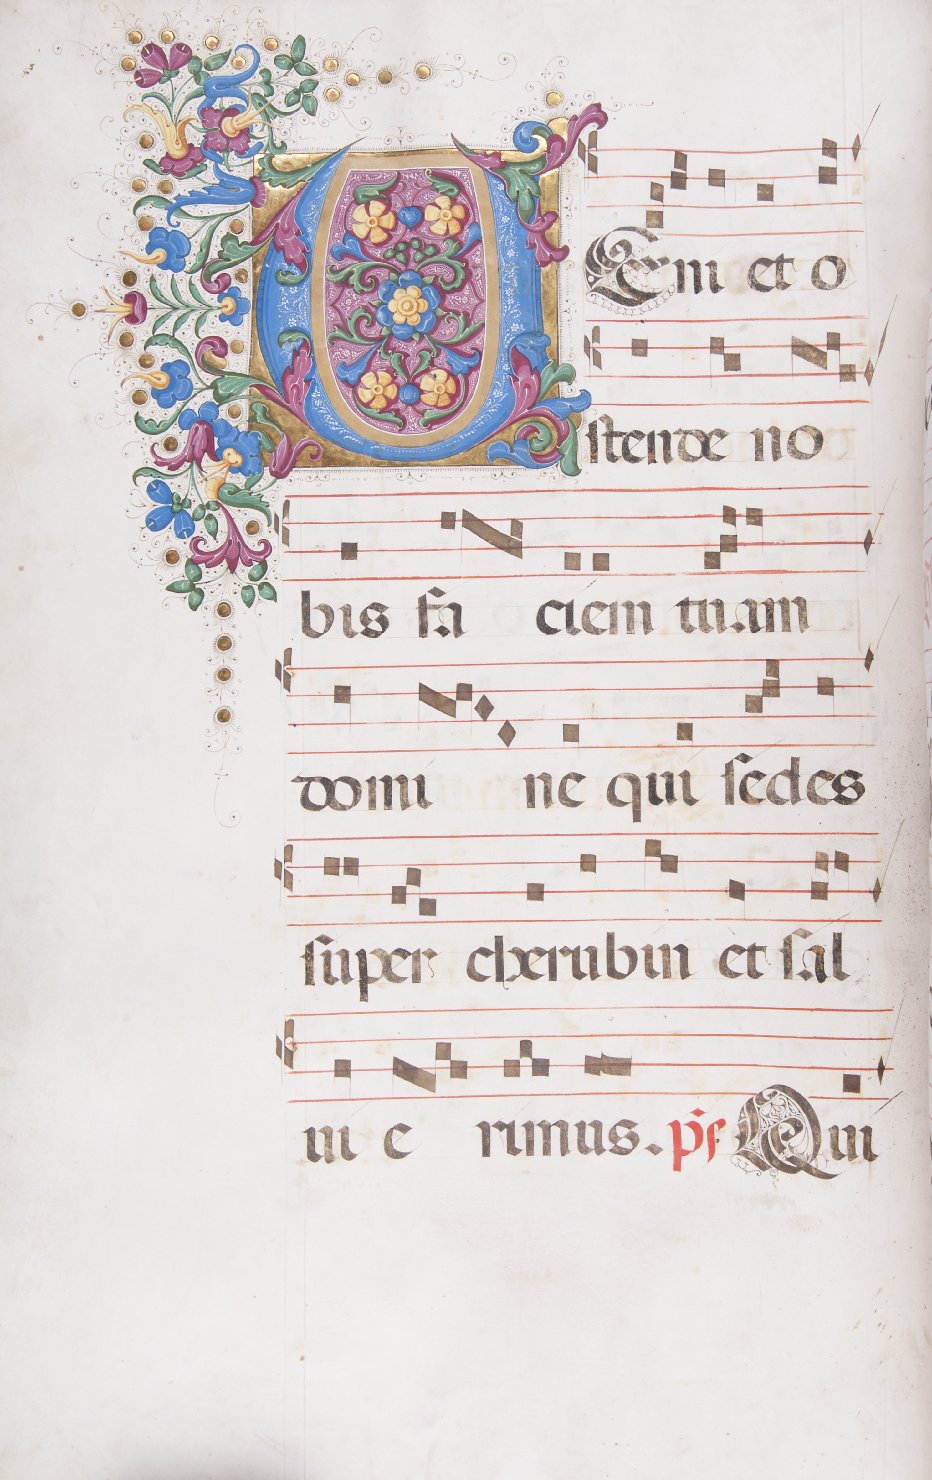 VEni et o
stende no
bis fa ciem tuam
domi ne qui sedes
super cherubin et sal
ui e rimus. ps Qui